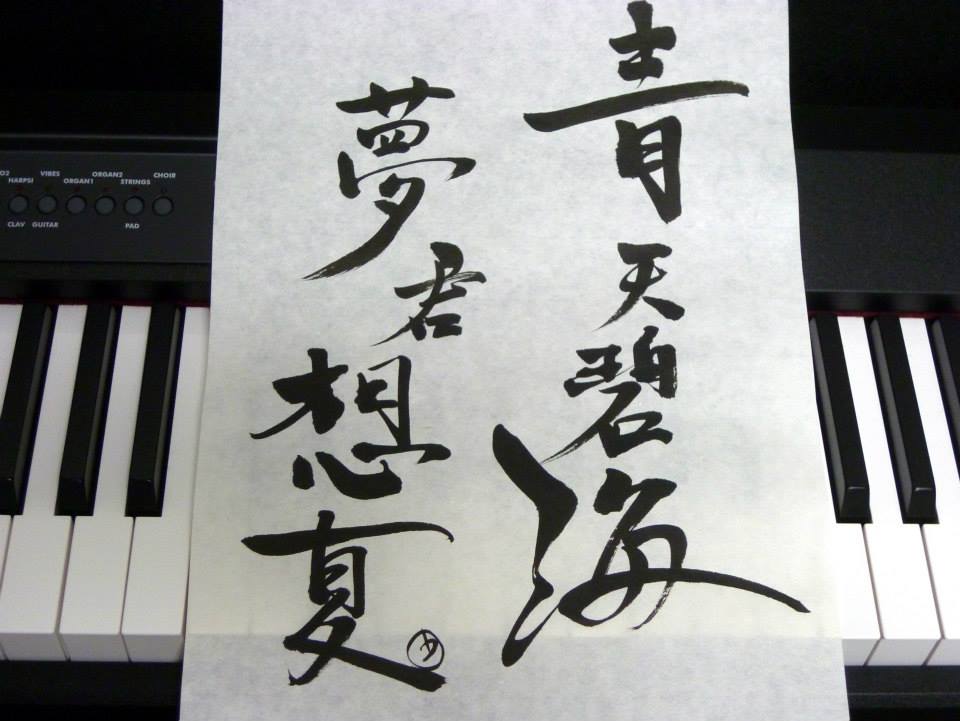 青天碧海
夢君想夏
HARPSI VIBES ORGAN1 ORGAN2 STRINGS CHOIR
CLAV GUITAR PAD